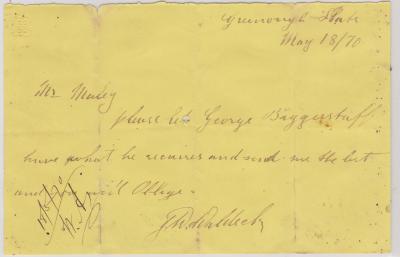 Greenough Flats
May 18/70
Mr Maley
please let George Biggerstaff
have what he requires and send me the bil
and you will Oblige.
18/5/70